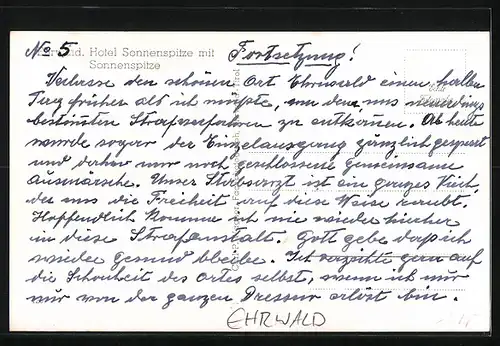 No 5 Fortsetzung!
Ehrwald. Hotel Sonnenspitze mit
Sonnenspitze
Verlasse den schönen Ort Ehrwald einen halben
Tag früher als ich müßte, um dem, uns neuerdings
bestimmten Strafverfahren zu entkommen. Ab heute
wurde sogar der Einzelausgang gänzlich gesperrt
und daher nur noch geschlossene gemeinsame
Ausmärsche. Unser Stabsarzt ist ein ganzes Vieh,
der uns die Freiheit auf diese Weise raubt.
Hoffendlich komme ich nie wieder hieher
in diese Strafanstalt. Gott gebe daß ich
wieder gesund bleibe. Ich verzichte gern auf
die Schönheit des Ortes selbst, wenn ich nur
nur von der ganzen Dressur erlöst bin.
EHRWALD